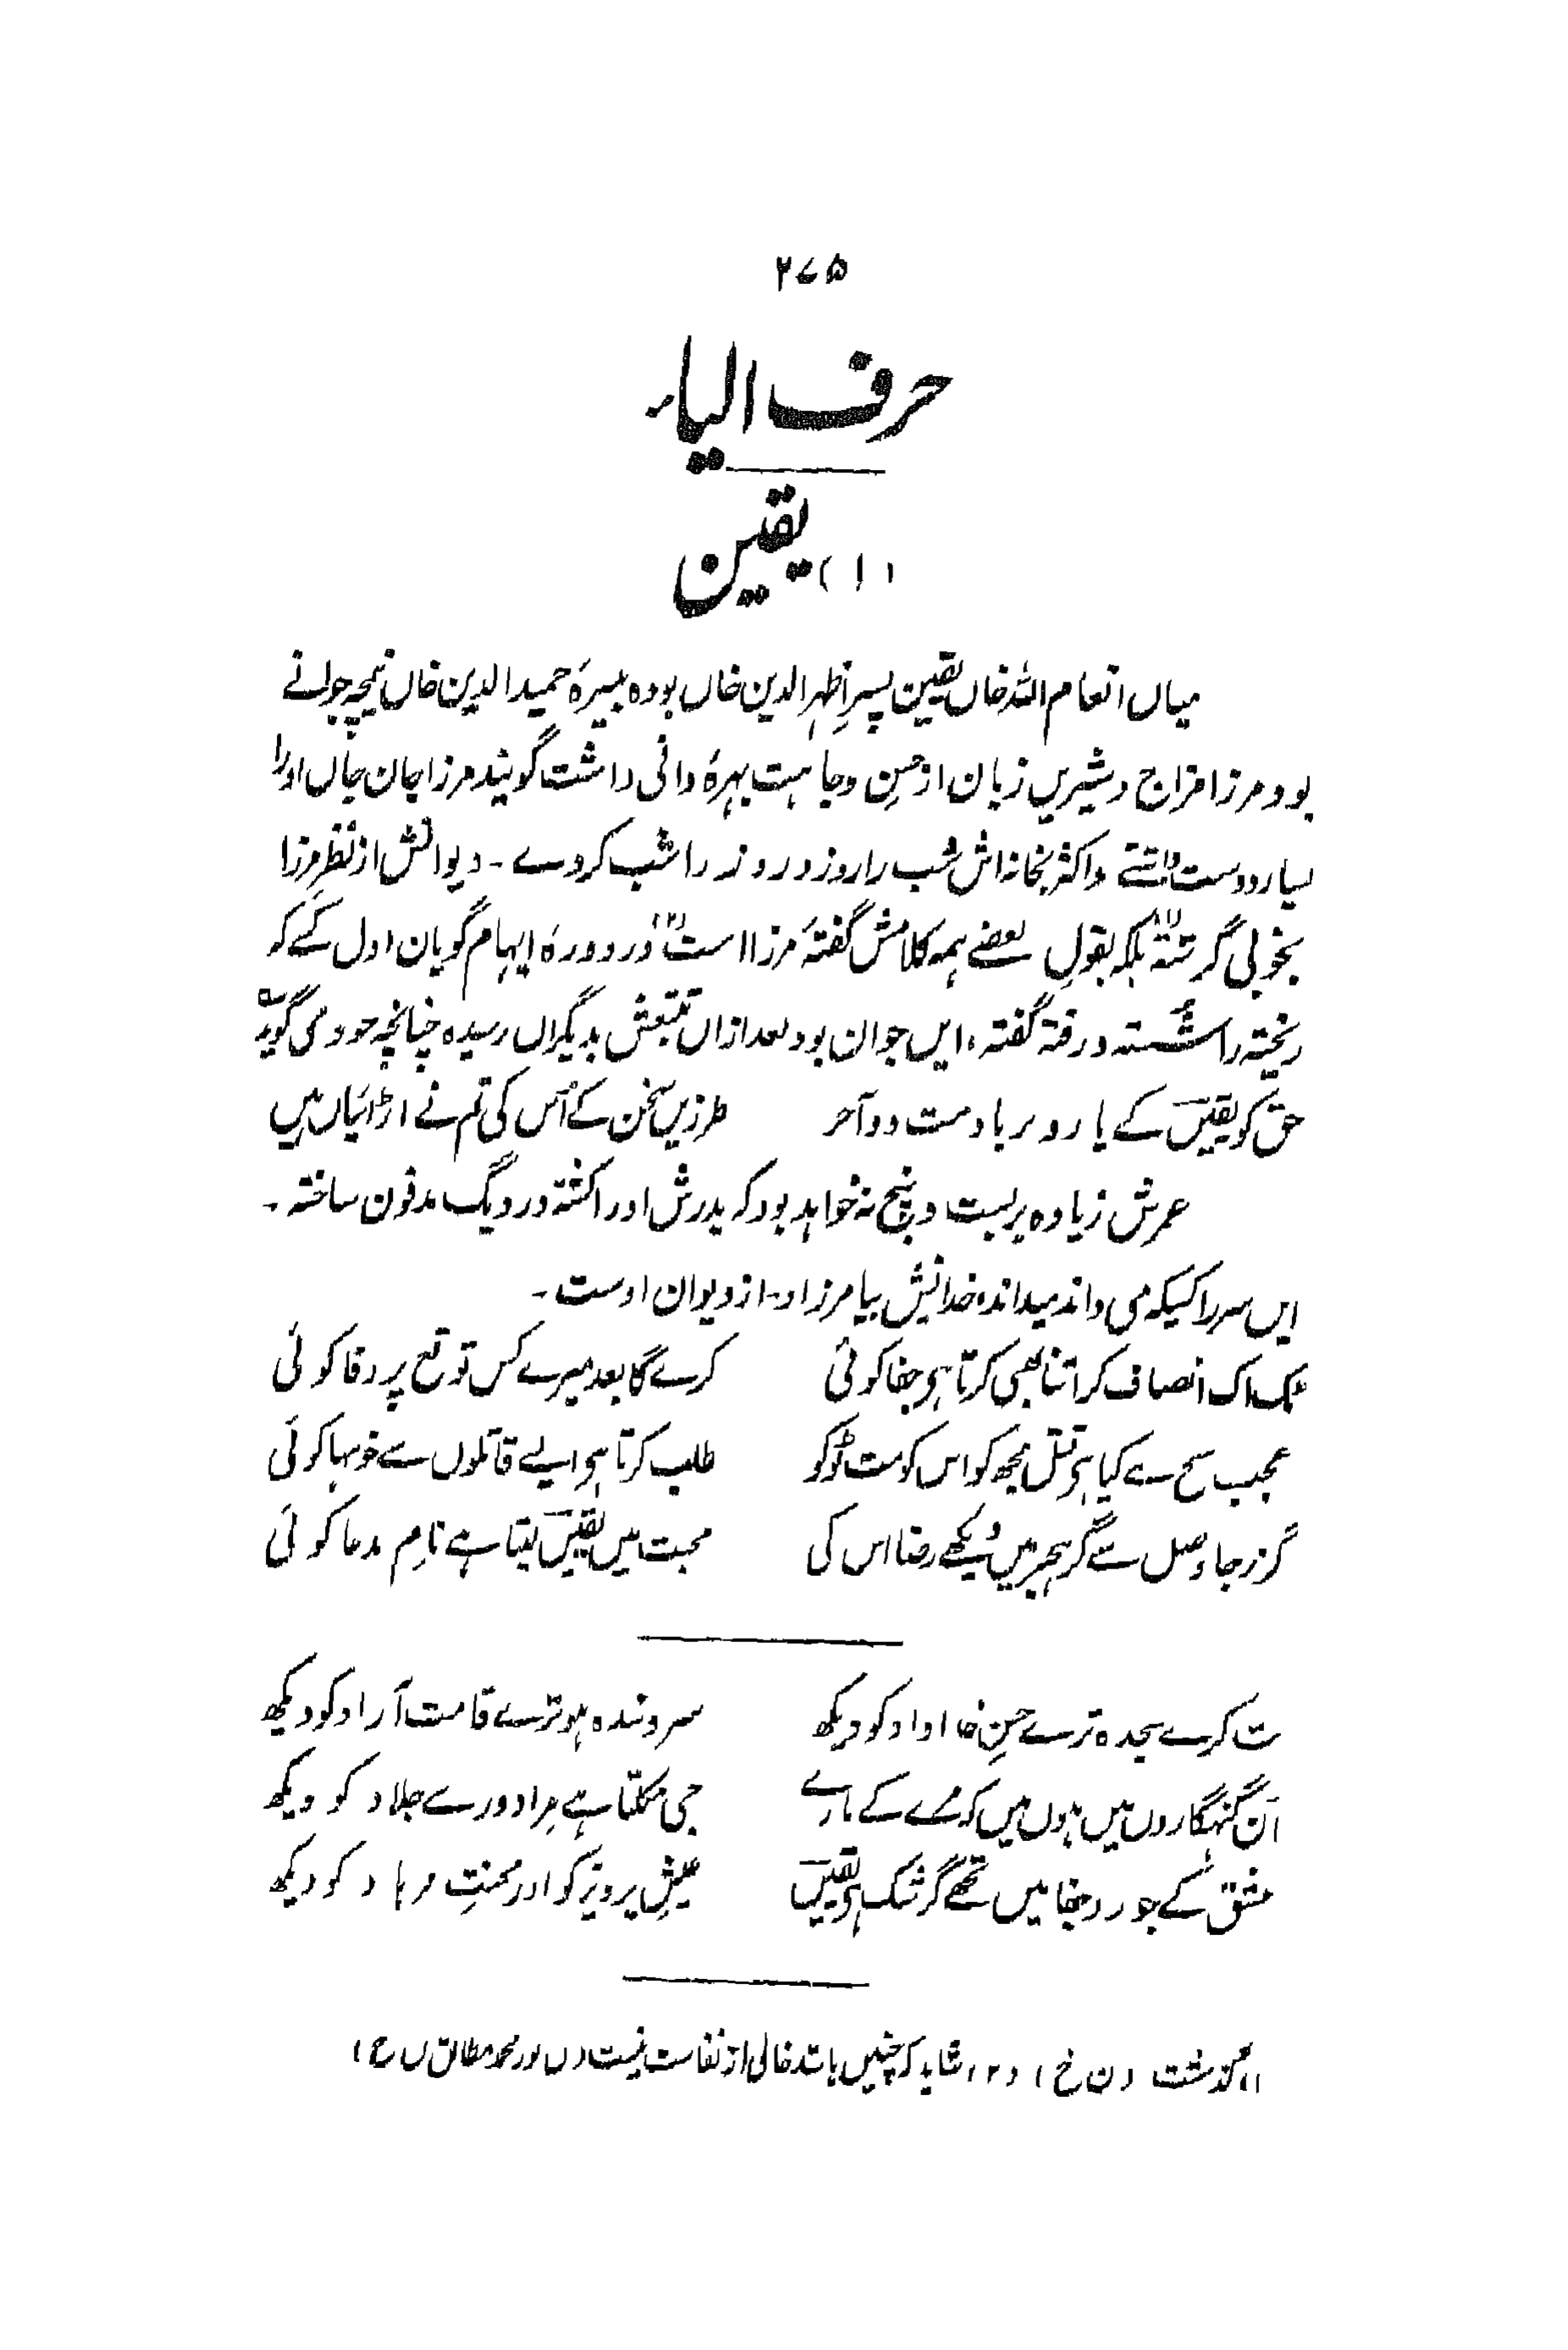 ۲۷۵
حرف الیاء
(۱) یقین
میاں انعام اللہ خاں یقین پسرِ اظہر الدین خاں بودہ نبیرۂ حمید الدین خاں نیمچہ جوانے
بود مرزا مزاج و شیریں زبان از حسن و جاہت بہرۂ وافی داشت گویند مرزا جان جاں اورا
بسیار دوست داشتے و اکثر بخانہ اش شب را روز و روز را شب کردے ۔ دیوانش از نظرِ مرزا
بخوبی گرفتہ (۱) بلکہ بقولِ بعضے ہمہ کلامش گفتۂ مرزا است (۲) در دورۂ ایہام گویان اول کسے کہ
ریختہ را شستہ و رفتہ گفتہ، ایں جوان بود بعد ازاں تتبعش بدیگراں رسیدہ چنانچہ خود می گوید
حق کو یقیںؔ کے یارو برباد مت دو آخر
طرزیں سخن کے اُس کی تم نے اڑائیاں ہیں
عمرش زیادہ بر بست و پنج نہ خواہد بود کہ پدرش اورا کشتہ در دیگ مدفون ساختہ ۔
ایں سر را کسیکہ می داند میداند، خدایش بیامرزاد۔ از دیوان اوست ۔
ٹک اک انصاف کر اتنا بھی کرتا ہے جفا کوئی
کرے گا بعد میرے کس توقع پر وفا کوئی
عجب سج سے کیا ہے قتل مجھ کو اس کو مت ٹوکو
طلب کرتا ہے ایسے قاتلوں سے خوں بہا کوئی
گزر جا وصل سے گر ہجر میں دیکھے رضا اس کی
محبت میں یقیںؔ لیتا ہے نامِ مدعا کوئی
بت کرے سجدہ ترے حسنِ خدا داد کو دیکھ
سرو بندہ ہو ترے قامت آزاد کو دیکھ
اُن گنہگاروں میں ہوں میں کہ مرے کے بارے
جی نکلتا ہے مرا دور سے جلاد کو دیکھ
عشق کے جور و جفا میں تجھے گر شک ہے یقیںؔ
عیشِ پرویز کو اور محنتِ فرہاد کو دیکھ
(۱) گذشت (ن خ) (۲) شاید کہ چنیں باشد خالی از نفاست نیست